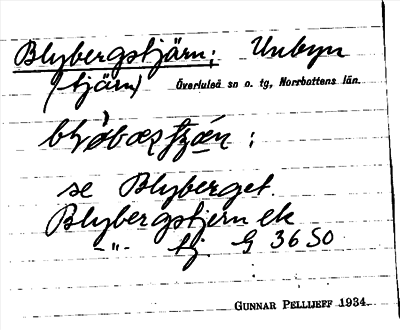 Blybergstjärn; Unbyn
(tjärn) Överluleå sn o. tg, Norrbottens län.
:
se Blyberget.
Blybergstjern ek
-"- tj. G 36 SO
GUNNAR PELLIJEFF 1934.